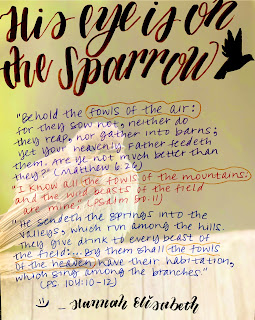 His eye is on
the Sparrow
"Behold the fowls of the air:
for they sow not, neither do
they reap, nor gather into barns;
yet your heavenly Father feedeth
them. Are ye not much better than
they?" (Matthew 6:26)
"I know all the fowls of the mountains:
and the wild beasts of the field
are mine." (Psalm 50:11)
"He sendeth the springs into the
valleys, which run among the hills.
They give drink to every beast of
the field:... By them shall the fowls
of the heaven have their habitation,
which sing among the branches."
(PS. 104:10-12)
- Hannah Elisabeth